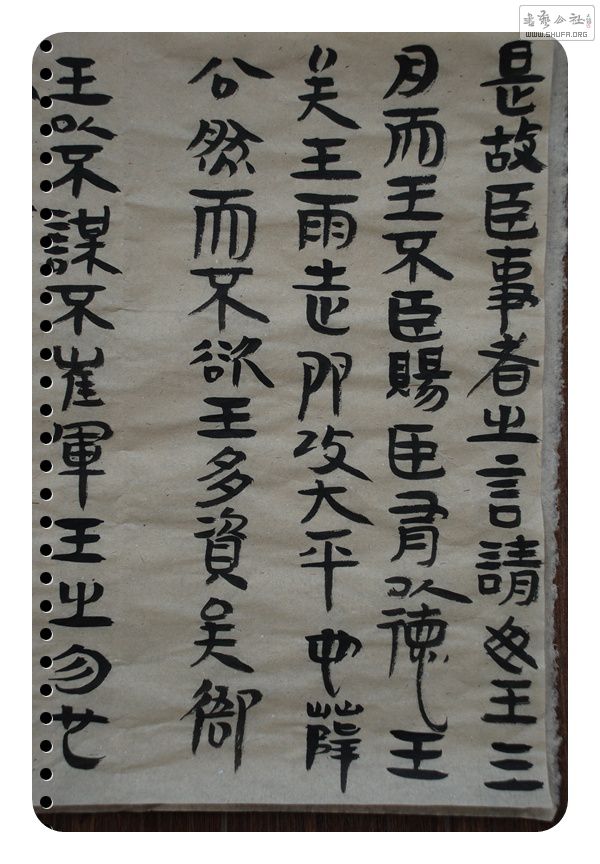 書藝公社
WWW.SHUFA.ORG
是故臣事者之言請毋王三
月而王不臣賜臣以德王
王雨走攻大平也薛
公然而不欲王多資吴
王以不謀不崔軍王之勿也